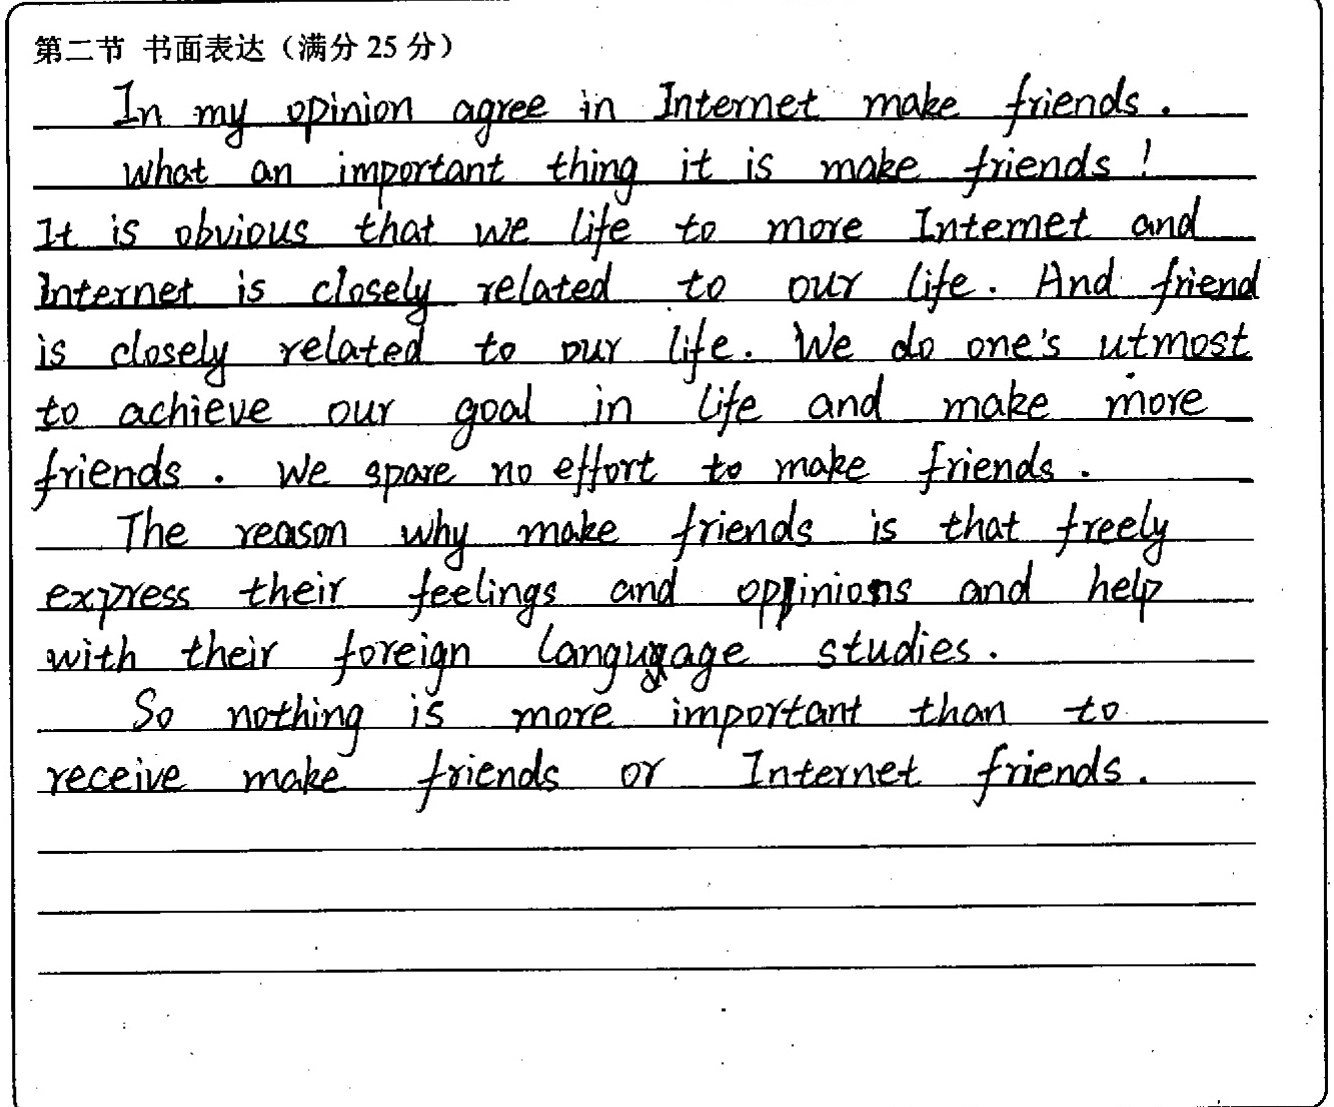 第二节 书面表达（满分 25 分）
In my opinion agree in Internet make friends.
What an important thing it is make friends!
It is obvious that we life to more Internet and
Internet is closely related to our life. And friend
is closely related to our life. We do one's utmost
to achieve our goal in life and make more
friends. We spare no effort to make friends.
The reason why make friends is that freely
express their feelings and opinions and help
with their foreign language studies.
So nothing is more important than to
receive make friends or Internet friends.